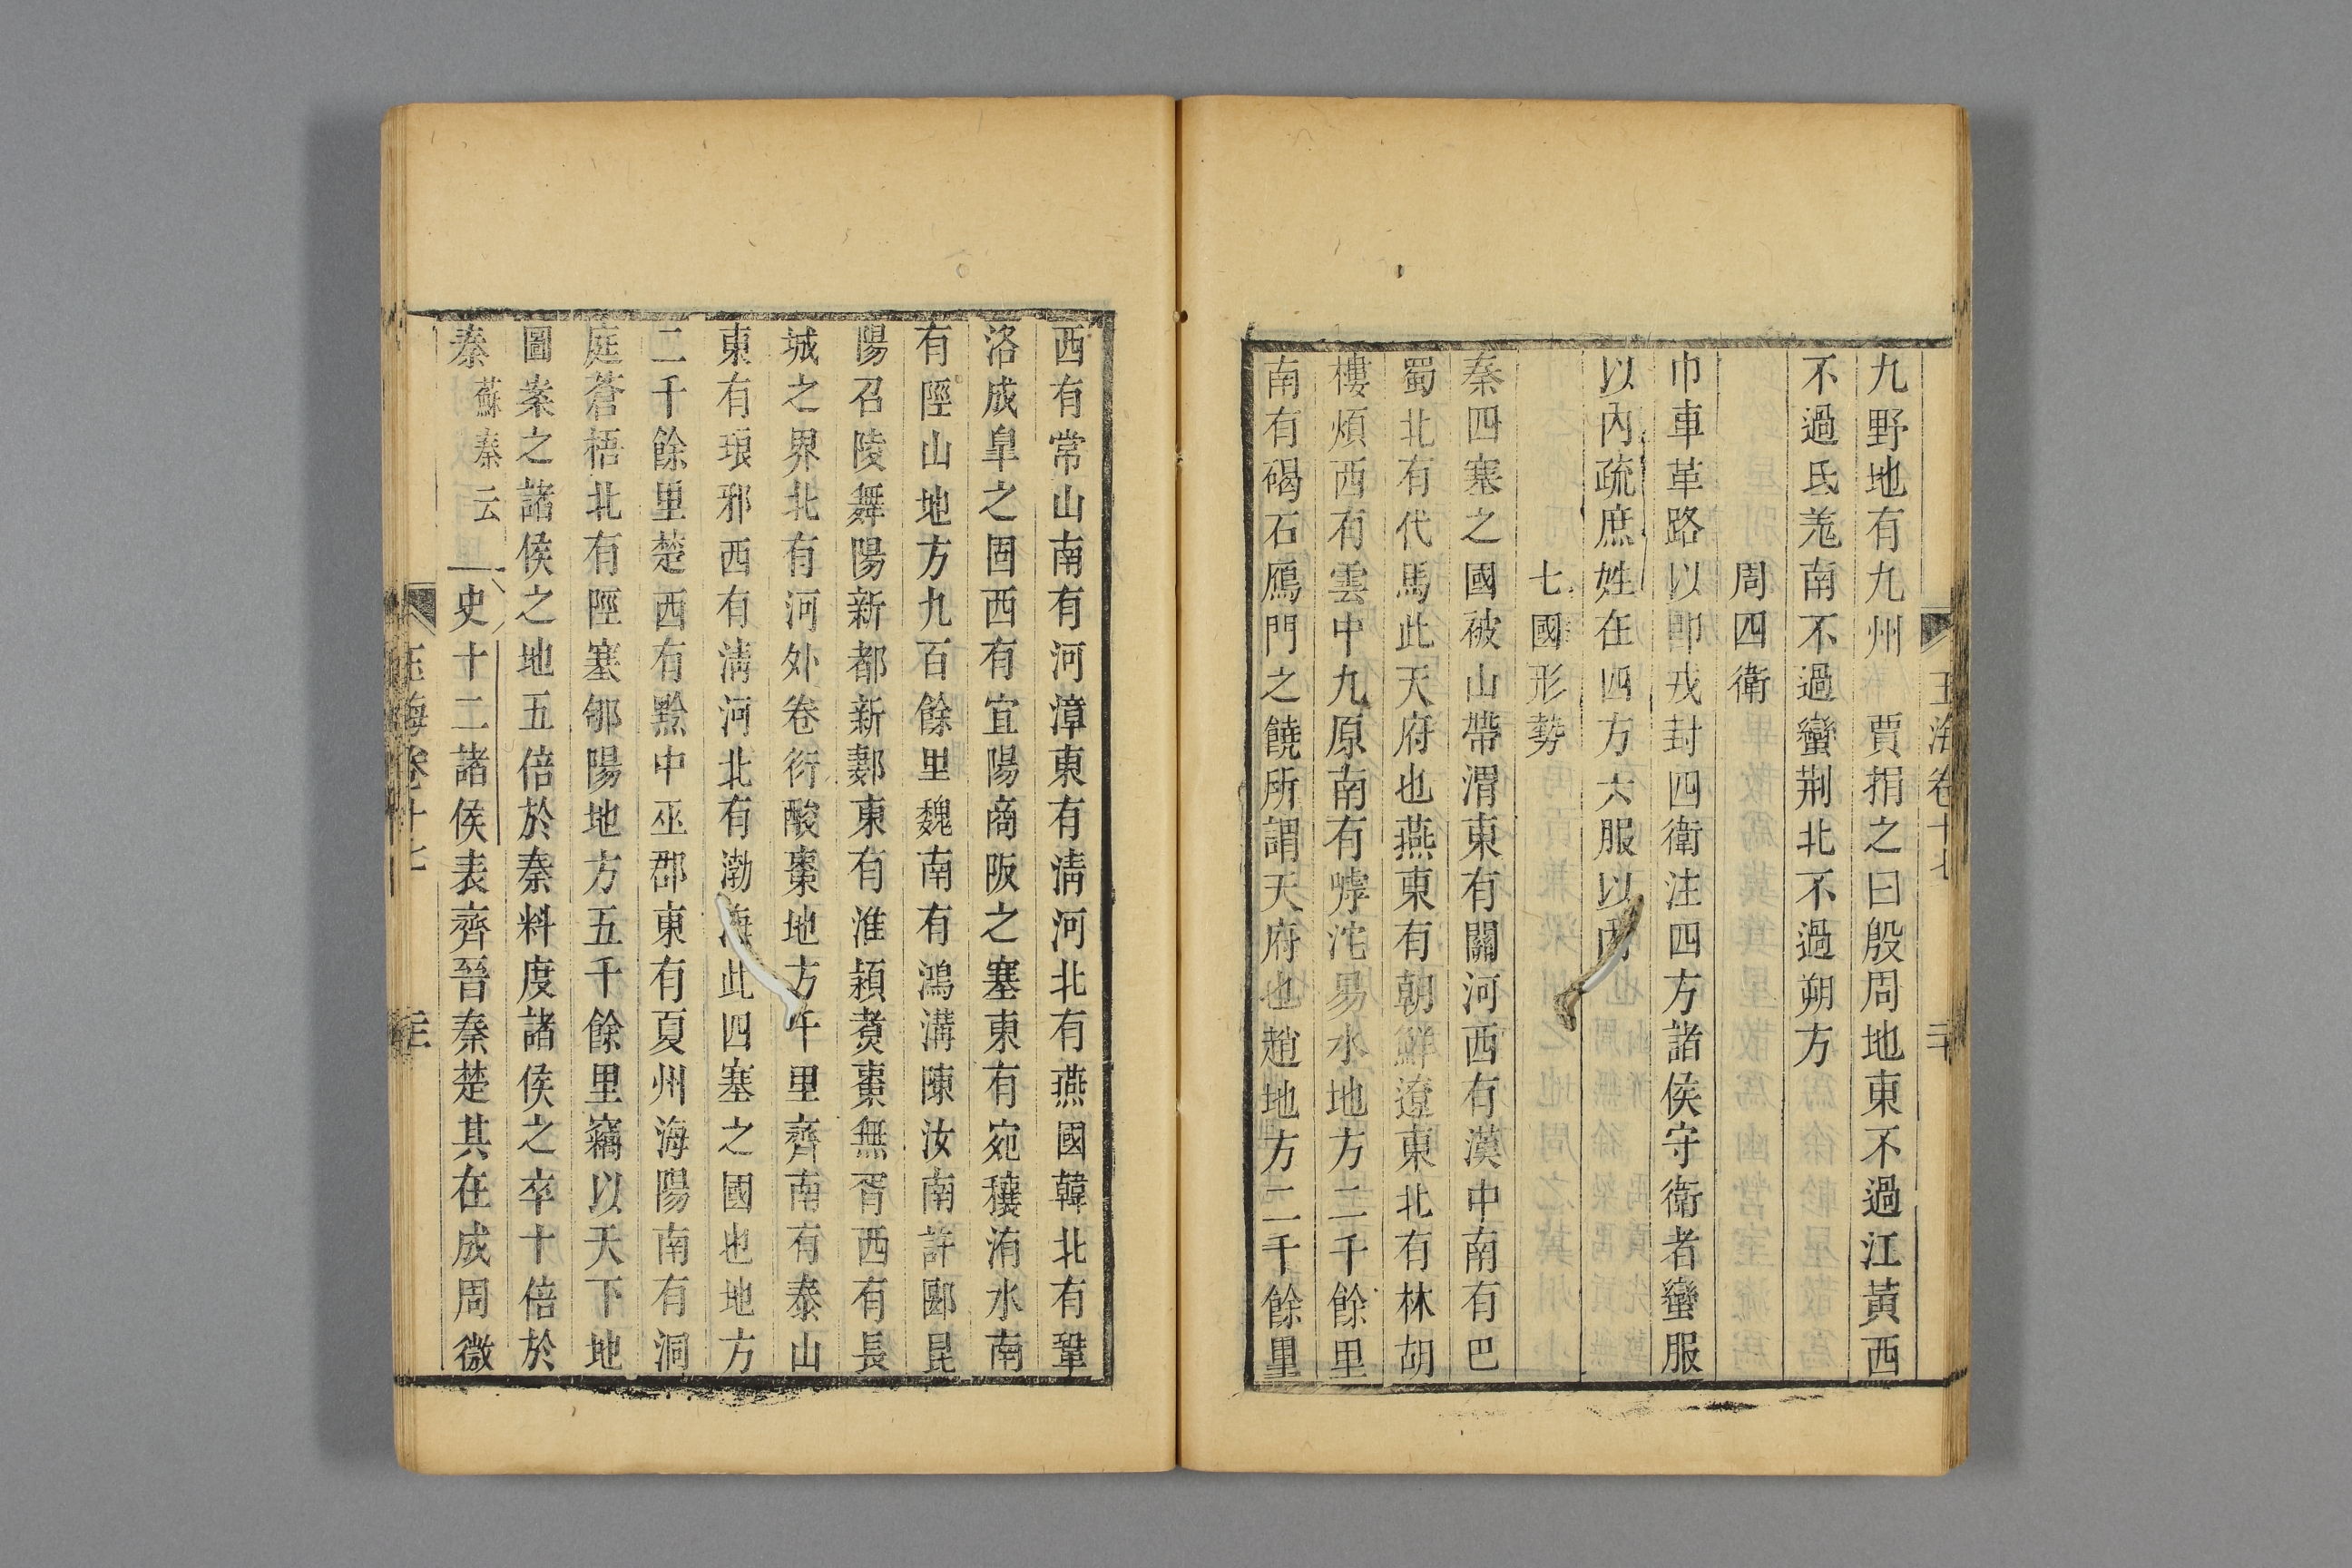 玉海卷十七
二十
九野地有九州　賈捐之曰殷周地東不過江黃西
不過氐羌南不過蠻荆北不過朔方
周四衛
巾車革路以卽戎封四衛注四方諸侯守衛者蠻服
以內疏庶姓在四方六服以內
七國形勢
秦四塞之國被山帶渭東有關河西有漢中南有巴
蜀北有代馬此天府也燕東有朝鮮遼東北有林胡
樓煩西有雲中九原南有嘑沱易水地方二千餘里
南有碣石鴈門之饒所謂天府也趙地方二千餘里
西有常山南有河漳東有淸河北有燕國韓北有鞏
洛成臯之固西有宜陽商阪之塞東有宛穰洧水南
有陘山地方九百餘里魏南有鴻溝陳汝南許郾昆
陽召陵舞陽新都新郪東有淮潁煑棗無胥西有長
城之界北有河外卷衍酸棗地方千里齊南有泰山
東有琅邪西有淸河北有渤海此四塞之國也地方
二千餘里楚西有黔中巫郡東有夏州海陽南有洞
庭蒼梧北有陘塞郇陽地方五千餘里竊以天下地
圖案之諸侯之地五倍於秦料度諸侯之卒十倍於
秦蘇秦云　史十二諸侯表齊晉秦楚其在成周微
玉海卷十七